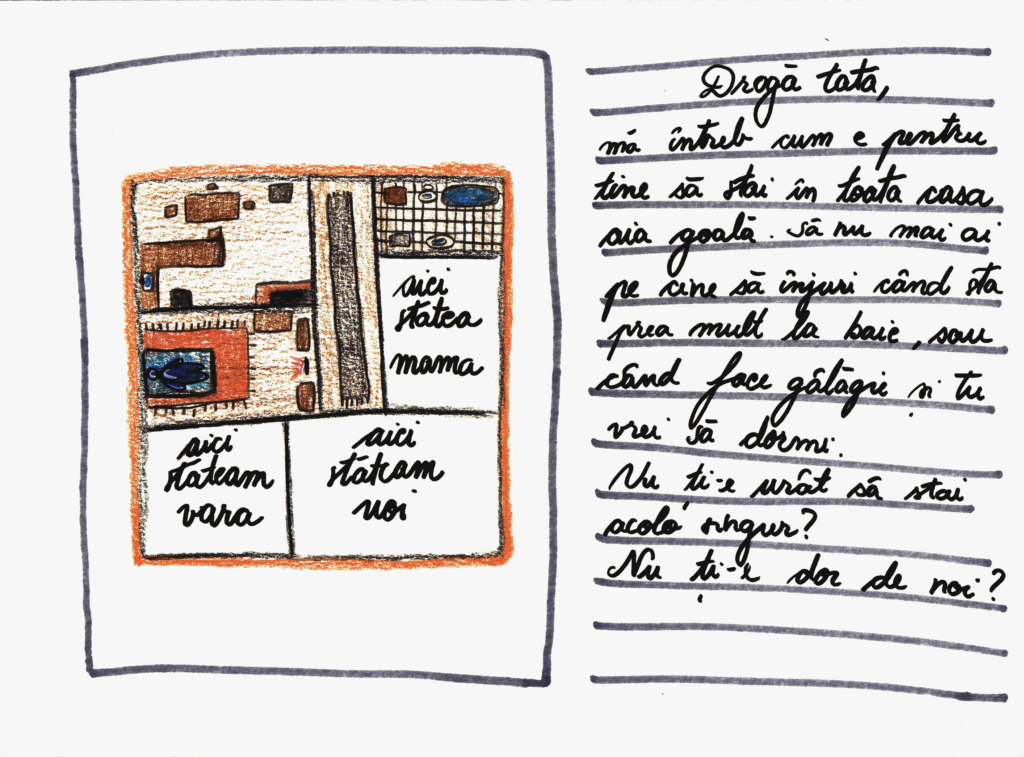 aici
statea
mama
aici
stăteam
vara
aici
stăteam
noi
Dragă tata,
mă întreb cum e pentru
tine să stai în toata casa
aia goală. Să nu mai ai
pe cine să înjuri când sta
prea mult la baie, sau
când face gălăgie și tu
vrei să dormi.
Nu ți-e urât să stai
acolo singur?
Nu ți-e dor de noi?